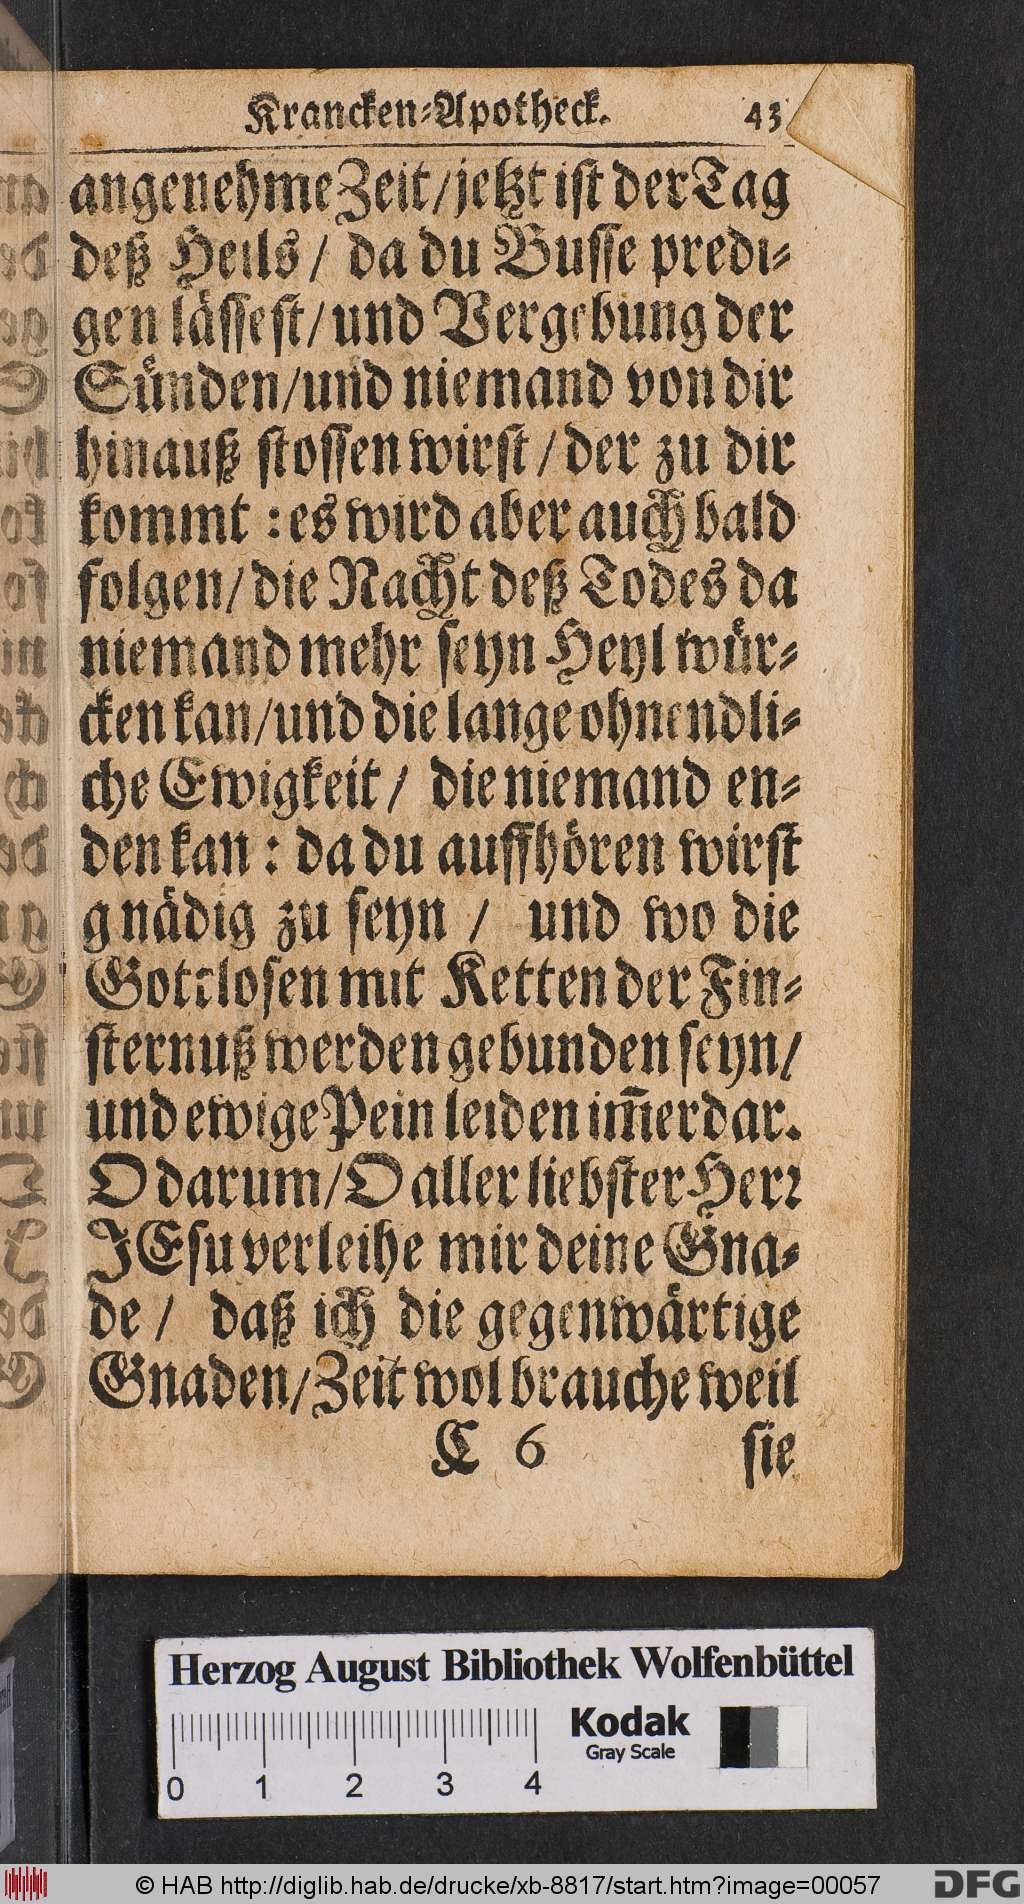 Krancken-Apotheck. 43
angenehme Zeit / jetzt ist der Tag
deß Heils / da du Busse predi-
gen lässest / und Vergebung der
Sünden / und niemand von dir
hinauß stossen wirst / der zu dir
kommt : es wird aber auch bald
folgen / die Nacht deß Todes da
niemand mehr seyn Heyl wür-
cken kan / und die lange ohnendli-
che Ewigkeit / die niemand en-
den kan : da du auffhören wirst
gnädig zu seyn / und wo die
Gottlosen mit Ketten der Fin-
sternuß werden gebunden seyn /
und ewige Pein leiden im̃erdar.
O darum / O aller liebster Herr
JEsu verleihe mir deine Gna-
de / daß ich die gegenwärtige
Gnaden / Zeit wol brauche weil
C 6 sie
Herzog August Bibliothek Wolfenbüttel
Kodak
Gray Scale
0 1 2 3 4
© HAB http://diglib.hab.de/drucke/xb-8817/start.htm?image=00057
DFG